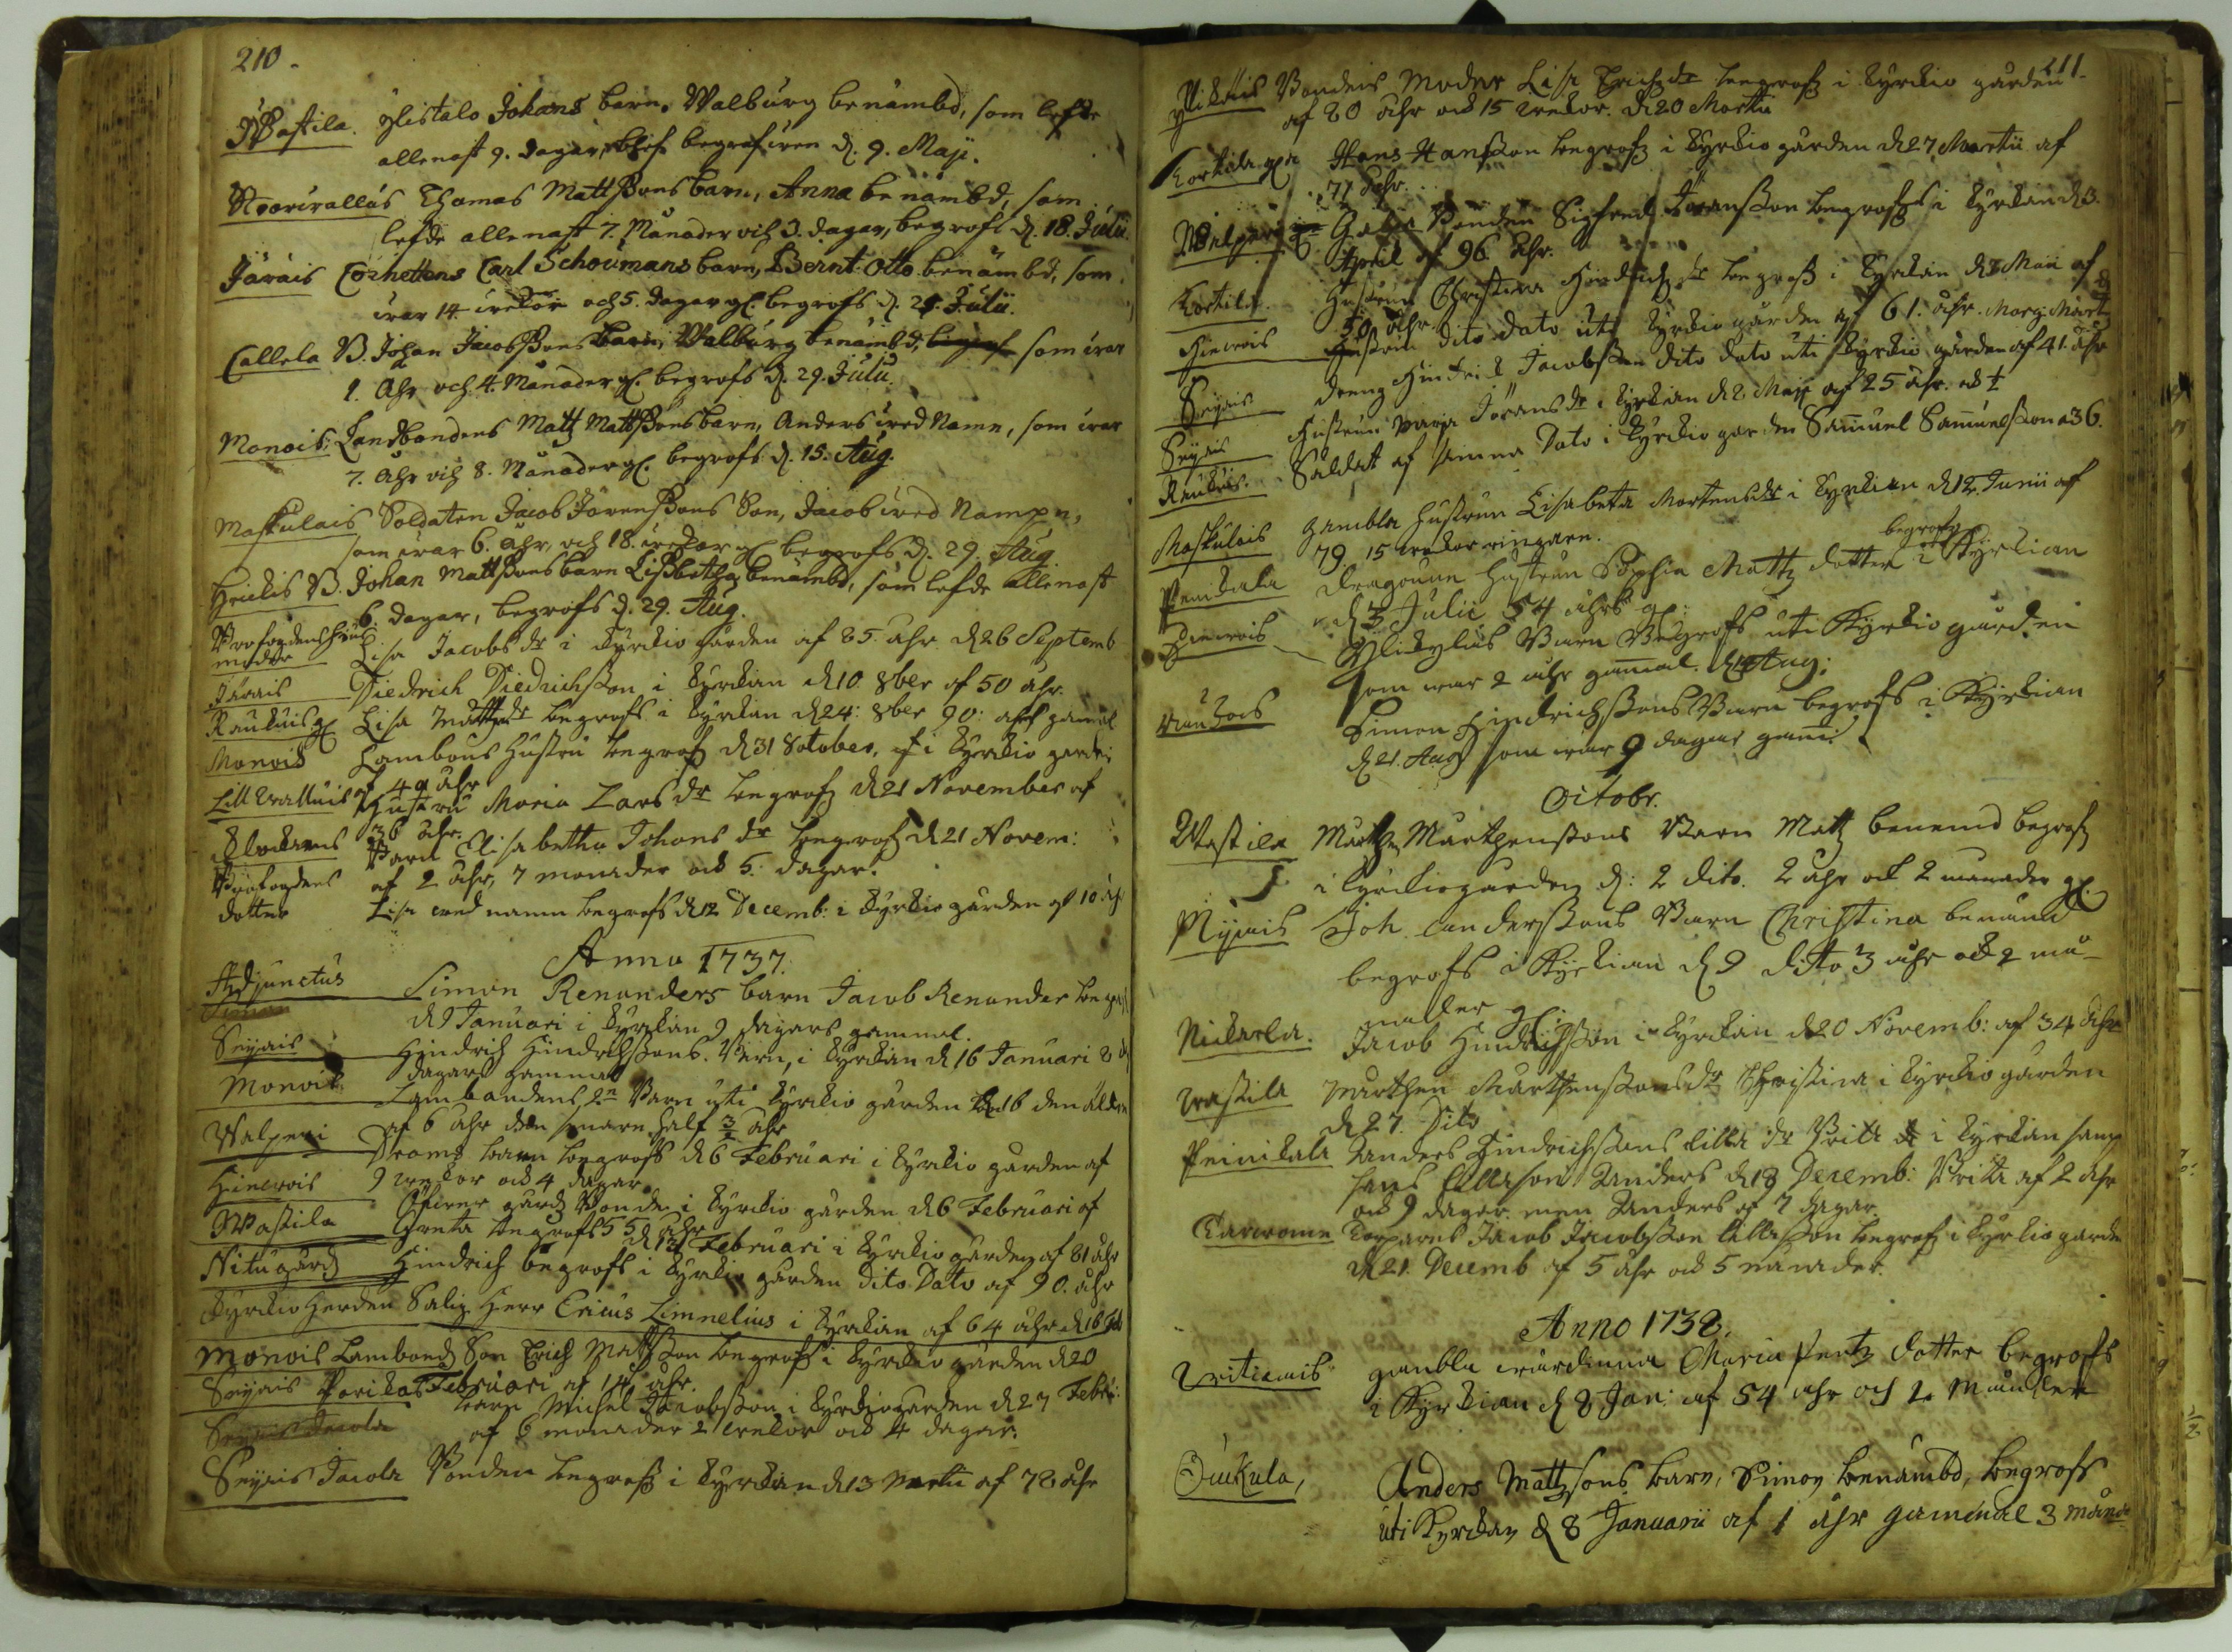 210.
Wastila. Yllistalo Johans barn, Walburg benämbd, som lefde
allenast 9. dagar, blef begrafven d. 9. Maji.
Thomas Mattssons barn, Anna benämbd, som
lefde allenast 7. Månader och 3. dagar, begrofs d. 18. Julii.
Järäis Cornettens Carl Schoumans barn, Bernt Otto benämbd, som
war 14 wekor och 5. dagar gl. begrofs d. 21. Julii.
Callela B. Johan Jacobssons barn, Walburg benämbd, som war
1. Åhr och 4. Månader gl. begrofs d. 29. Julii.
Monois Landbondens Matz Mattssons barn, Anders wed Namn, som war
7. åhr och 8. Månader gl. begrofs d. 15. Aug.
Maskulais Soldaten Jacob Jörenssons Son, Jacob wed Nampn,
som war 6. åhr, och 18. wekor gl. begrofs d. 29. Aug.
B. Johan Mattssons barn Lissbetha benämbd, som lefde allenast
6. dagar, begrofs d. 29. Aug.
moder Lisa Jacobs dr i Kyrkio gården af 85. åhr d 26 Septemb
Järais Diedrich Diedrichsson i Kyrkian d 10 8ber af 50 åhr.
Raukuis gl Lisa Matts dr begrofs i Kyrkian d 24: 8ber 90: åhr gamal
Monois Lambons Hustru begrofs d 31 8ctober, i Kyrkio garden
af 49 åhr
Hustru Maria Lars dr begrofs d 21 November af
36 åhr.
Barn Elisabetha Johans dr begrofs d 21 Novem:
af 2 åhr, 7 monader och 5. dagar.
dotter Lisa wed namn begrofs d 12 Decemb: i Kyrkio gården af 10 åhr
Anno 1737.
Adjunctus Simon Renanders barn Jacob Renander begrofs
d 9 Januari i Kyrkian 9 dagars gammal.
Seijais Hindrich Hindrichssons Barn, i Kyrkian d 16 Januari 8
dagars gammal
Monois Lambondens 2n Barn uti Kyrkio gården d 16 den äldre
af 6 åhr den smare half 3/4 åhr
Walperi barn begrofs d 6 Februari i Kyrkio gården af
9 wekor och 4 dagar
Hiewois gårdz Bonde i Kyrkio gården d 6 Februari af
55 åhr
Wastila Greta begrofs d 13 Februari i Kyrkio gården af 81 åhr
Nitu gård Hindrich begrofs i Kyrkio gården dito Dato af 90. åhr
Kyrkio Herden Salig Herr Ericus Limnelius i Kyrkian af 64 åhr d 16
Monois Lambondz Son Erich Mattsson begrofs i Kyrkio gården d 20
Februari af 14 åhr.
Seijais barn Michel Jacobsson i Kyrkiogården d 27 Febru:
af 6 monader 2 wekor och 4 dagar.
Seijais Jacola Bonden begrofs i Kyrkian d 13 Martii af 78 åhr
211.
Bondens Moder Lisa Erichs dr begrofz i Kyrkio gården
af 80 åhr och 15 wekor. d 20 Martii
Hans Hansson begrofz i Kyrkio gården d 27 Martii af
77 åhr.
Walperi Bonden Sigfred Jöransson begrofs i Kyrkian d 3.
April af 96 åhr.
Kortila Hustrun Christina Hindrichs dr begrofs i Kyrkian d 3 Maii af
50 åhr.
Hiewois Hustrun dito dato uti Kyrkio gården af 61. åhr. Marg: Mårt
Seijais dreng Hindrick Jacobsson dito dato uti Kyrkio gården af 41. åhr
Seijais Hustrun Maria Jörans dr i Kyrkian d 8 Maji af 25 åhr. och 1/2
Raukuis. Soldat af samma Dato i Kyrkio garden Samuel Samuelsson a 36.
Maskulais gambla Hustrun Lisabeta Mortens dr i Kyrkian d 12. Junii af
79 15 wekor ringare.
Penikala dragoun hustrun Sophia Mattz dotter begrofz i Kyrkian
d 3 Julii 54 åhrs gl.
Hiewois Barn Begrofs uti Kyrkio gården
som war 2 åhr gammal. d 14 Aug:
Simon Hindrichssons Barn begrofs i Kyrkian
d 21. Aug som war 9 dagar gaml
Octobr.
Wastila Mårthen Mårthenssons Barn Matz benemd begrofz
i Kyrkiogården d: 2 dito. 2 åhr och 2 manader gl.
Nyynäis Joh Anderssons Barn Christina benämd
begrofs i Kyrkian d 9 dito 3 åhr och 2 må-
nader gl.
Nickarla. Jacob Hindrichsson i Kyrkian d 20 Novemb: af 34 åhr
Wastila Mårthen Mårthenssons dr Christina i Kyrkio gården
d 27. Dito
Penikala Anders Hindrichssons lilla dr Brita i Kyrkian samt
hans lilla son Anders d 18 Decemb: Brita af 2 åhr
och 9 dagar men Anders af 7 dagar.
Jacob Jacobsson lilla son begrofz i Kyrkio garden
d 21. Decemb af 5 åhr och 5 manader.
Anno 1738.
gambla wärdinna Maria Pertz dotter begrofs
i Kyrkian d 8 Jan: af 54 åhr och 2 månader
Ouckula, Anders Mattzsons barn, Simon benämbd, begrofs
uti Kyrckan d 8 Januarii af 1 åhr gammal 3 månd